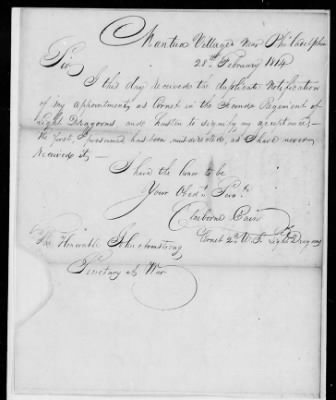 Mantua Village near Philadelphia
28th February 1814
Sir
I this day received the duplicate Notification
of my appointment, as Cornet in the Second Regiment of
Light Dragoons, and hasten to signify my acceptance,—
the first, I presumed has been misdirected, as I have never
received it,—
I have the honor to be
Your Obedt. Servt.
Claiborne
Cornet 2nd U.S. Light Dragoons
The Honorable John Armstrong
Secretary of War